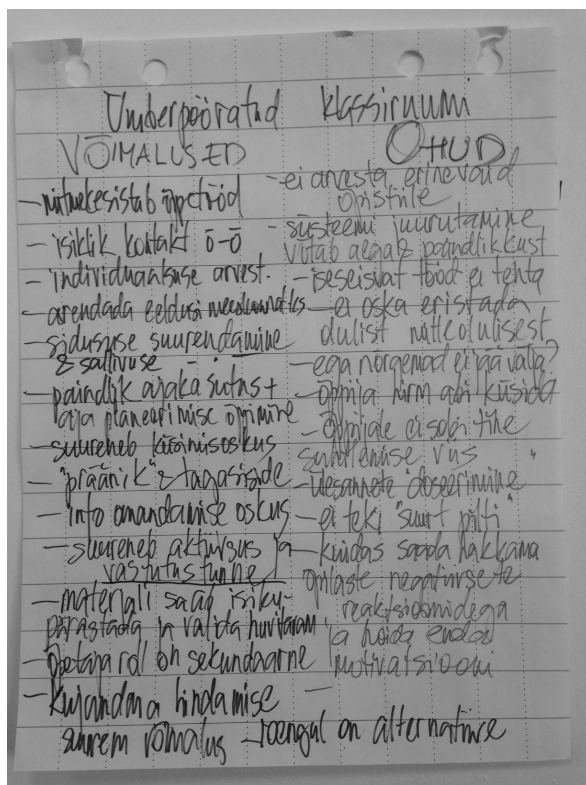 Ümberpööratud klassiruumi
VÕIMALUSED
- mitmekesistab õppetööd
- isiklik kontakt õ-õ
- individuaalsuse arvest.
- arendada eeldusi meeskonnatööks
- sidususe suurendamine
& sallivuse - " -
- paindlik ajakasutus +
aja planeerimise õppimine
- suureneb küsimisoskus
- "präänik" & tagasiside
- info omandamise oskus
- suureneb aktiivsus ja
vastutustunne
- materjali saab isiku-
pärastada ja valida huvitavam
- õpetaja roll on sekundaarne
- kujundava hindamise
suurem võimalus
OHUD
- ei arvesta erinevaid
õpistiile
- süsteemi juurutamine
võtab aega & paindlikkust
- iseseisvat tööd ei tehta
- ei oska eristada
olulist mitteolulisest
- ega nõrgemad ei jää välja?
- õpilja hirm abi küsida
- õppijale ei sobi ühe
suhtlemise viis
- ülesannete doseerimine
- ei teki "suurt pilti"
- kuidas saada hakkama
õpilaste negatiivsete
reaktsioonidega
ja hoida enda
motivatsiooni
- loengul on alternatiive